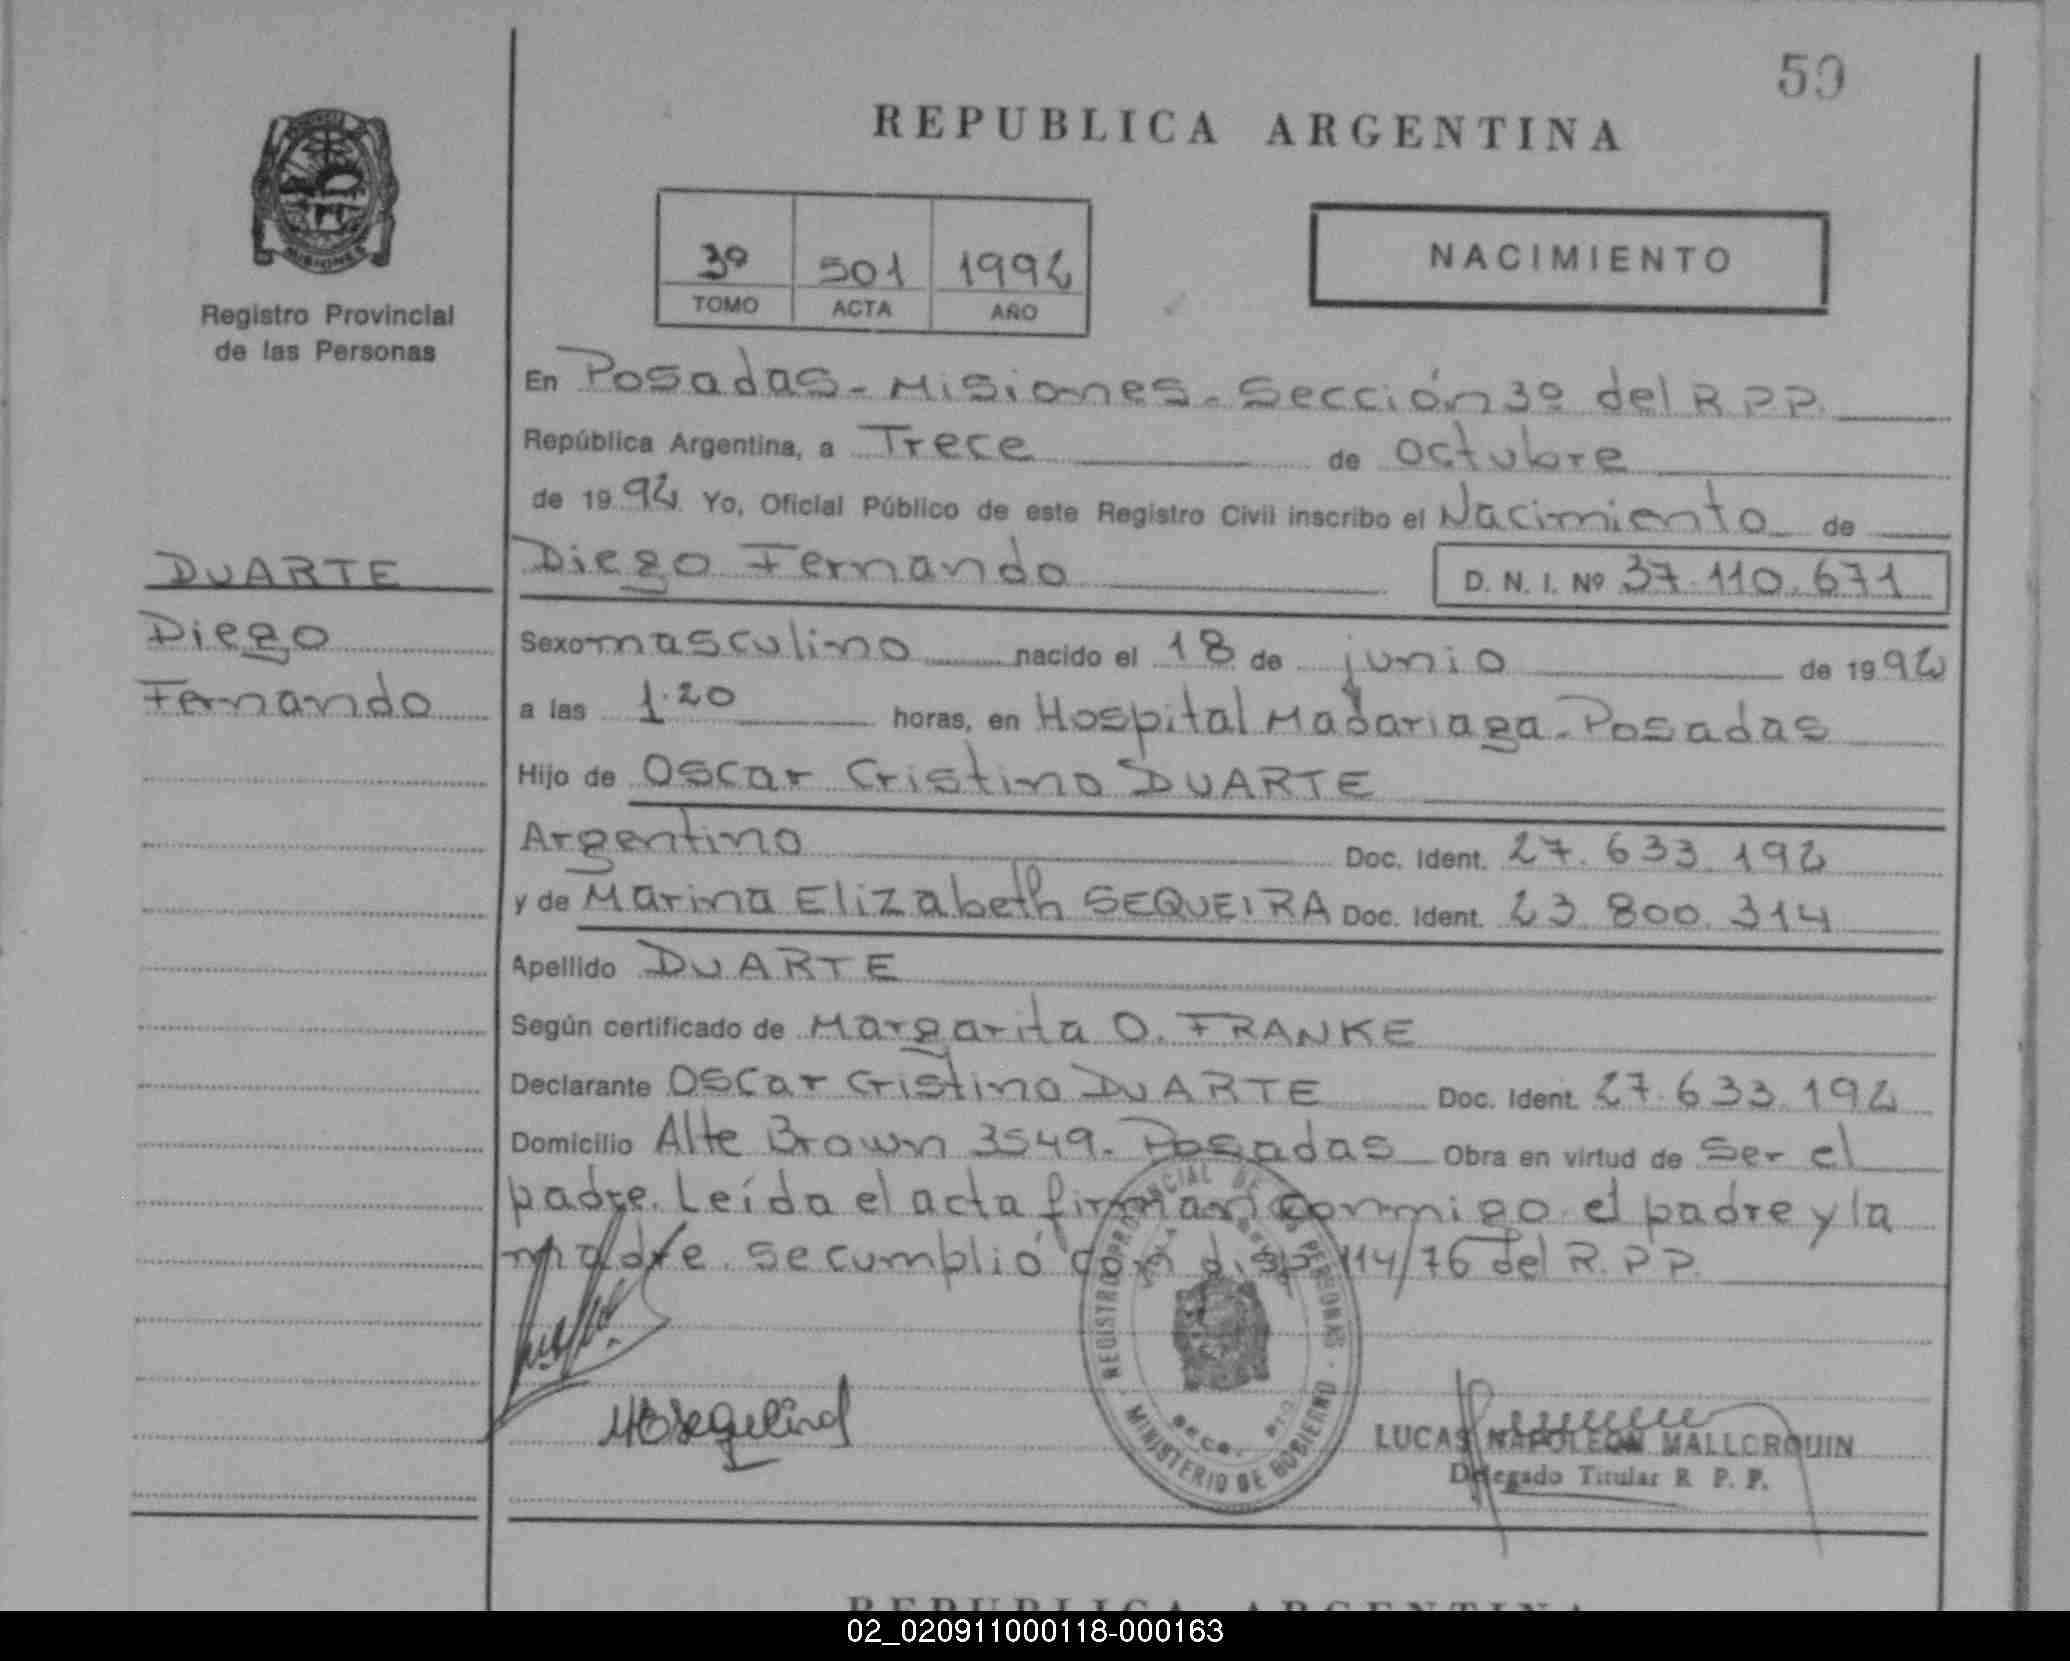 59
REPUBLICA ARGENTINA
MISIONES
Registro Provincial
de las Personas
3º 501 1992
TOMO ACTA AÑO
NACIMIENTO
En Posadas - Misiones - Sección 3º del R P P.
República Argentina, a Trece de octubre
de 1992 Yo, Oficial Público de este Registro Civil inscribo el Nacimiento de
DUARTE
Diego Fernando D. N. I. Nº 37.110.671
Diego
Fernando
Sexo masculino nacido el 18 de junio de 1992
a las 1.20 horas, en Hospital Madariaga - Posadas
Hijo de Oscar Cristino DUARTE
Argentino Doc. Ident. 27.633.192
y de Marina Elizabeth SEQUEIRA Doc. Ident. 23.800.314
Apellido DUARTE
Según certificado de Margarita O. FRANKE
Declarante Oscar Cristino DUARTE Doc. Ident. 27.633.192
Domicilio Alte Brown 3549. Posadas Obra en virtud de ser el
padre. Leída el acta firman conmigo el padre y la
madre. se cumplió con disp. 114/76 del R. P P.
REGISTRO PROVINCIAL DE LAS PERSONAS
MINISTERIO DE GOBIERNO
LUCAS NAPOLEON MALLORQUIN
Delegado Titular R. P. P.
REPUBLICA ARGENTINA
02_020911000118-000163